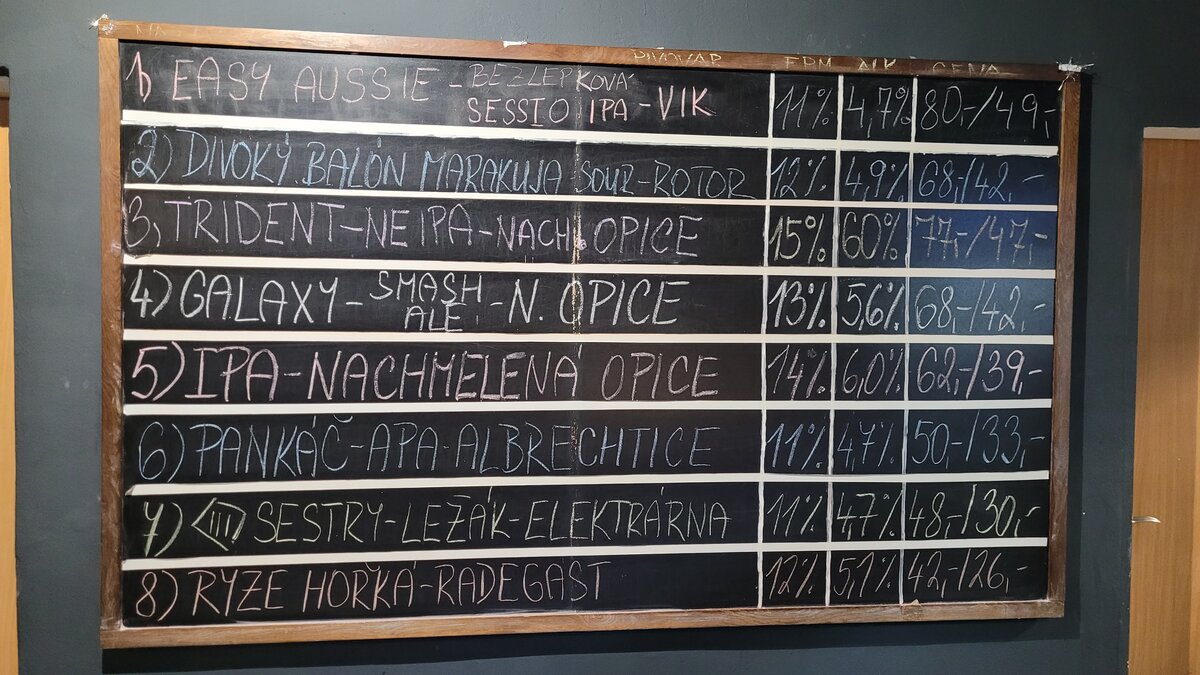 PIVOVAR EPM ALK CENA
1) EASY AUSSIE - BEZLEPKOVÁ SESSIO IPA - VIK 11% 4,7% 80,-/49,-
2) DIVOKÝ BALÓN MARAKUJA SOUR-ROTOR 12% 4,9% 68,-/42,-
3, TRIDENT-NEIPA-NACH. OPICE 15% 60% 77,-/47,-
4) GALAXY-SMASH ALE-N. OPICE 13% 5,6% 68,-/42,-
5) IPA-NACHMELENÁ OPICE 14% 6,0% 62,-/39,-
6) PANKÁČ-APA-ALBRECHTICE 11% 4,7% 50,-/33,-
7) III SESTRY-LEŽÁK-ELEKTRÁRNA 11% 4,7% 48,-/30,-
8) RYZE HOŘKÁ-RADEGAST 12% 5,1% 42,-/26,-